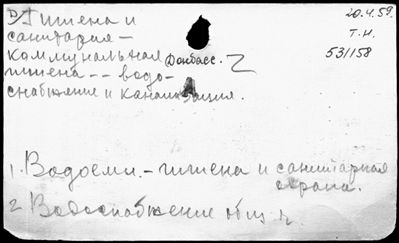 Гигиена и
санитария -
коммунальная Донбасс.
гигиена -- водо-
снабжение и канализация.
20.4.59.
Т.Н.
531158
1. Водоеми. - гигиена и санитарная
охрана.
2 Водоснабжение общ